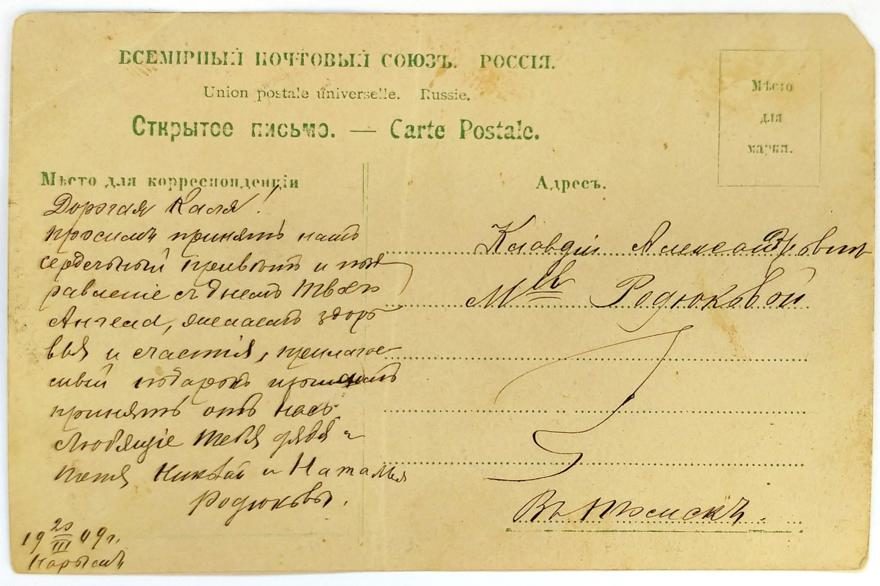 ВСЕМІРНЫЙ ПОЧТОВЫЙ СОЮЗЪ. РОССІЯ.
Union postale universelle. Russie.
Открытое письмо. — Carte Postale.
Мѣсто
для
марки.
Мѣсто для корреспонденціи
Дорогая Каля!
просимъ принять нашъ
сердечный привѣтъ и позд
равленіе съ днемъ твоего
Ангела, желаемъ здоро
вья и счастія, прилагае
мый подарокъ просимъ
принять отъ насъ
Любящіе тебя дядя и
тетя Николай и Наталья
Родюковы.
19 20/III 09 г.
Нарымъ
Адресъ.
Клавдіи Александровнѣ
М<sup>lle</sup> Родюковой
Въ Томскъ.